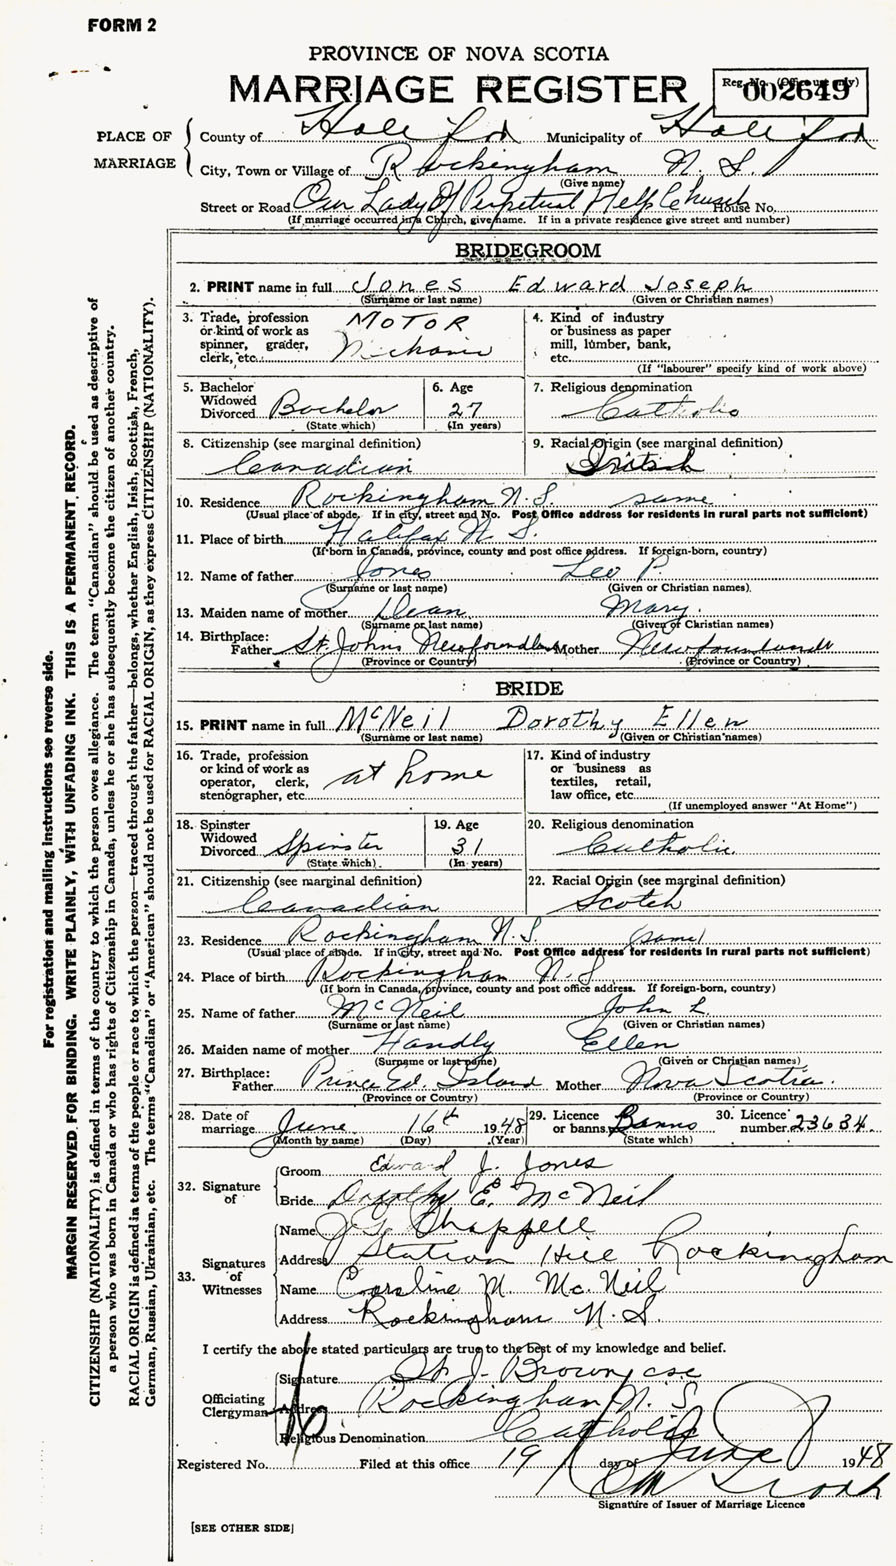 FORM 2
PROVINCE OF NOVA SCOTIA
MARRIAGE REGISTER
Reg. No. (Office use only)
002649
PLACE OF MARRIAGE
County of Halifax Municipality of Halifax
City, Town or Village of Rockingham N. S.
(Give name)
Street or Road Our Lady Of Perpetual Help Church House No.
(If marriage occurred in a Church, give name. If in a private residence give street and number)
BRIDEGROOM
2. PRINT name in full Jones Edward Joseph
(Surname or last name) (Given or Christian names)
3. Trade, profession or kind of work as spinner, grader, clerk, etc. MOTOR
4. Kind of industry or business as paper mill, lumber, bank, etc.
(If "labourer" specify kind of work above)
5. Bachelor Widowed Divorced Bachelor
(State which)
6. Age 27
(In years)
7. Religious denomination
Catholic
8. Citizenship (see marginal definition)
Canadian
9. Racial Origin (see marginal definition)
10. Residence Rockingham N. S. same
(Usual place of abode. If in city, street and No. Post Office address for residents in rural parts not sufficient)
11. Place of birth Halifax N. S.
(If born in Canada, province, county and post office address. If foreign-born, country)
12. Name of father Jones Leo P.
(Surname or last name) (Given or Christian names)
13. Maiden name of mother Dean Mary
(Surname or last name) (Given or Christian names)
14. Birthplace:
Father St. Johns Newfoundland Mother Newfoundland
(Province or Country) (Province or Country)
BRIDE
15. PRINT name in full McNeil Dorothy Ellen
(Surname or last name) (Given or Christian names)
16. Trade, profession or kind of work as operator, clerk, stenographer, etc. at home
17. Kind of industry or business as textiles, retail, law office, etc.
(If unemployed answer "At Home")
18. Spinster Widowed Divorced Spinster
(State which)
19. Age 31
(In years)
20. Religious denomination
Catholic
21. Citizenship (see marginal definition)
Canadian
22. Racial Origin (see marginal definition)
Scotch
23. Residence Rockingham N. S. (same)
(Usual place of abode. If in city, street and No. Post Office address for residents in rural parts not sufficient)
24. Place of birth Rockingham N. S
(If born in Canada, province, county and post office address. If foreign-born, country)
25. Name of father McNeil John L.
(Surname or last name) (Given or Christian names)
26. Maiden name of mother Handly Ellen
(Surname or last name) (Given or Christian names)
27. Birthplace:
Father Prince Ed. Island Mother Nova Scotia.
(Province or Country) (Province or Country)
28. Date of marriage June 16th 1948
(Month by name) (Day) (Year)
29. Licence or banns Banns
(State which)
30. Licence number 23634.
32. Signature of
Groom Edward J. Jones
Bride Dorothy E. McNeil
33. Signatures of Witnesses
Name Chappell
Address Station Hill Rockingham
Name Caroline M. McNeil
Address Rockingham N. S.
I certify the above stated particulars are true to the best of my knowledge and belief.
Officiating Clergyman
Signature J. Brown
Address Rockingham N. S
Religious Denomination Catholic
Registered No. Filed at this office 19 day of June 1948
Signature of Issuer of Marriage Licence
[SEE OTHER SIDE]
For registration and mailing instructions see reverse side.
MARGIN RESERVED FOR BINDING. WRITE PLAINLY, WITH UNFADING INK. THIS IS A PERMANENT RECORD.
CITIZENSHIP (NATIONALITY) is defined in terms of the country to which the person owes allegiance. The term "Canadian" should be used as descriptive of
a person who was born in Canada or who has rights of Citizenship in Canada, unless he or she has subsequently become the citizen of another country.
RACIAL ORIGIN is defined in terms of the people or race to which the person—traced through the father—belongs, whether English, Irish, Scottish, French,
German, Russian, Ukrainian, etc. The terms "Canadian" or "American" should not be used for RACIAL ORIGIN, as they express CITIZENSHIP (NATIONALITY).